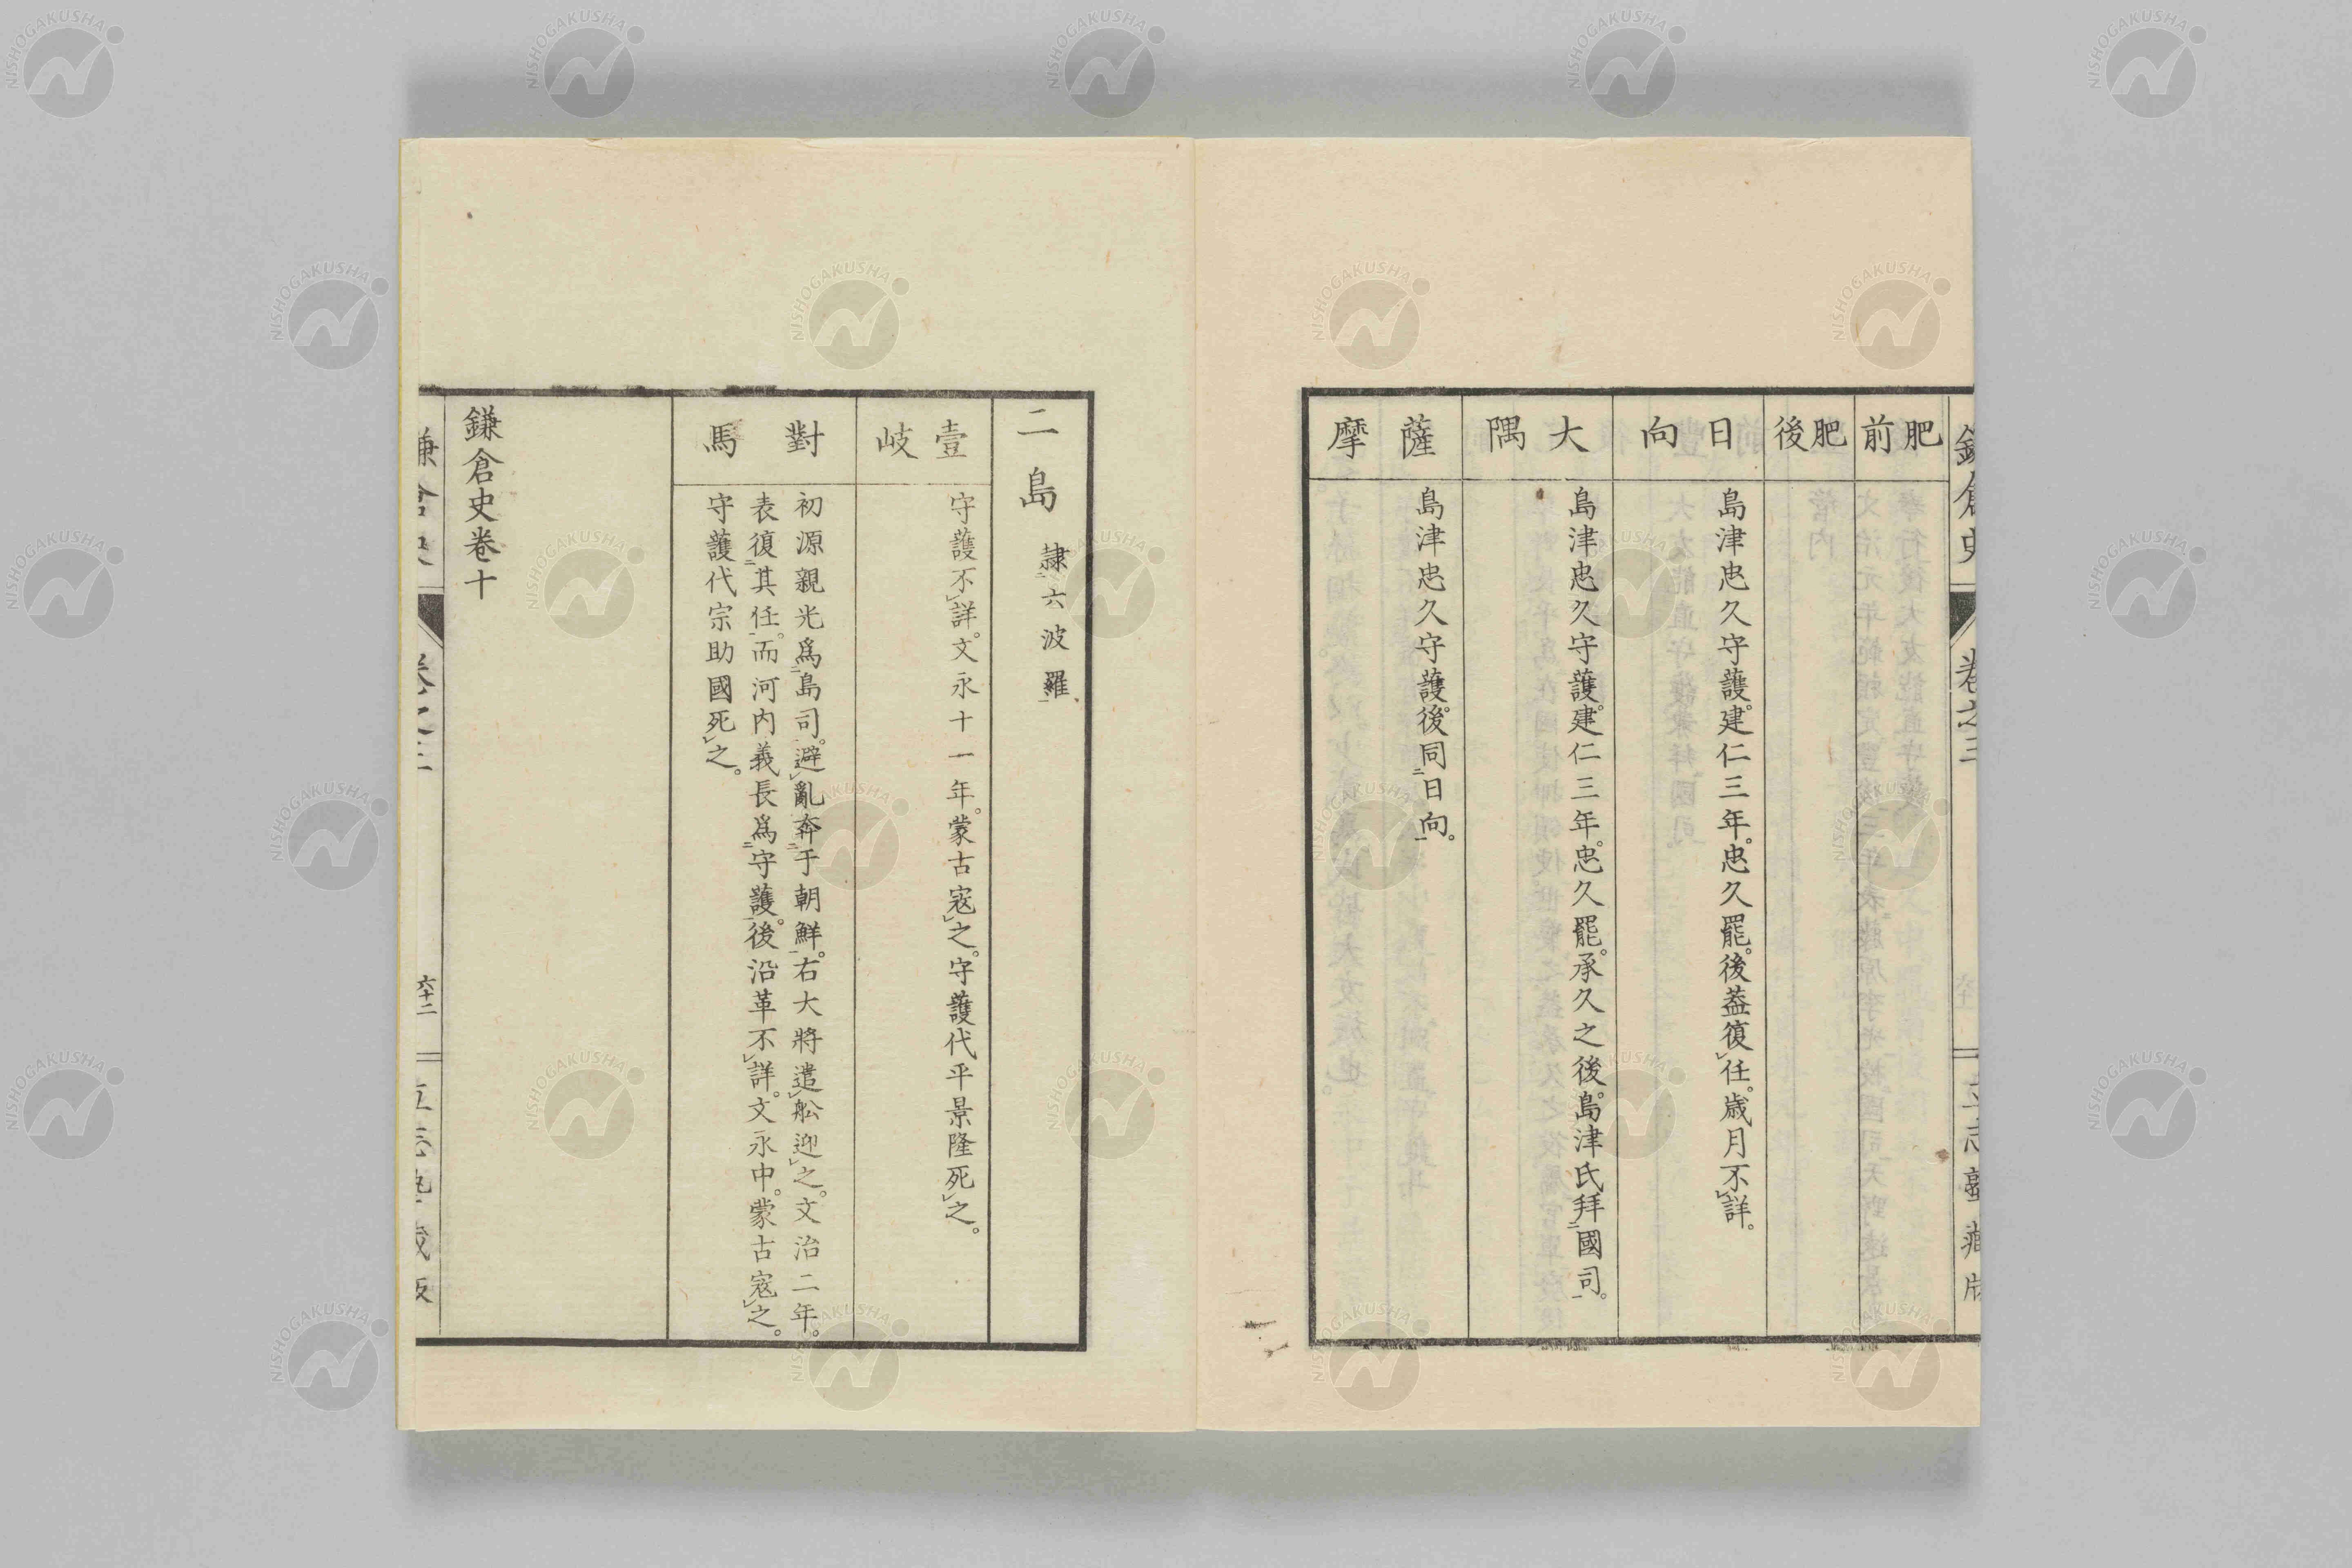 肥前
肥後
日向
島津忠久守護。建仁三年。忠久罷。後葢復任。歳月不詳。
大隅
島津忠久守護。建仁三年。忠久罷。承久之後。島津氏拜國司。
薩摩
島津忠久守護。後同日向。
二島 隷六波羅
壹岐
守護不詳。文永十一年。蒙古寇之。守護代平景隆死之。
對馬
初源親光爲島司。避亂奔于朝鮮。右大將遣舩迎之。文治二年。
表復其任。而河内義長爲守護。後沿革不詳。文永中。蒙古寇之。
守護代宗助國死之。
鎌倉史卷十
六十二
NISHOGAKUSHA